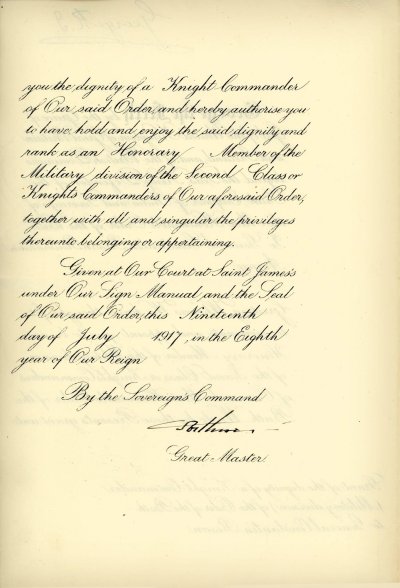 you the dignity of a Knight Commander
of Our said Order, and hereby authorise you
to have, hold and enjoy the said dignity and
rank as an Honorary Member of the
Military division of the Second Class or
Knights Commanders of Our aforesaid Order,
together with all and singular the privileges
thereunto belonging or appertaining.
Given at Our Court at Saint James's
under Our Sign Manual and the Seal
of Our said Order, this Nineteenth
day of July 1917, in the Eighth
year of Our Reign
By the Sovereign's Command
Great Master